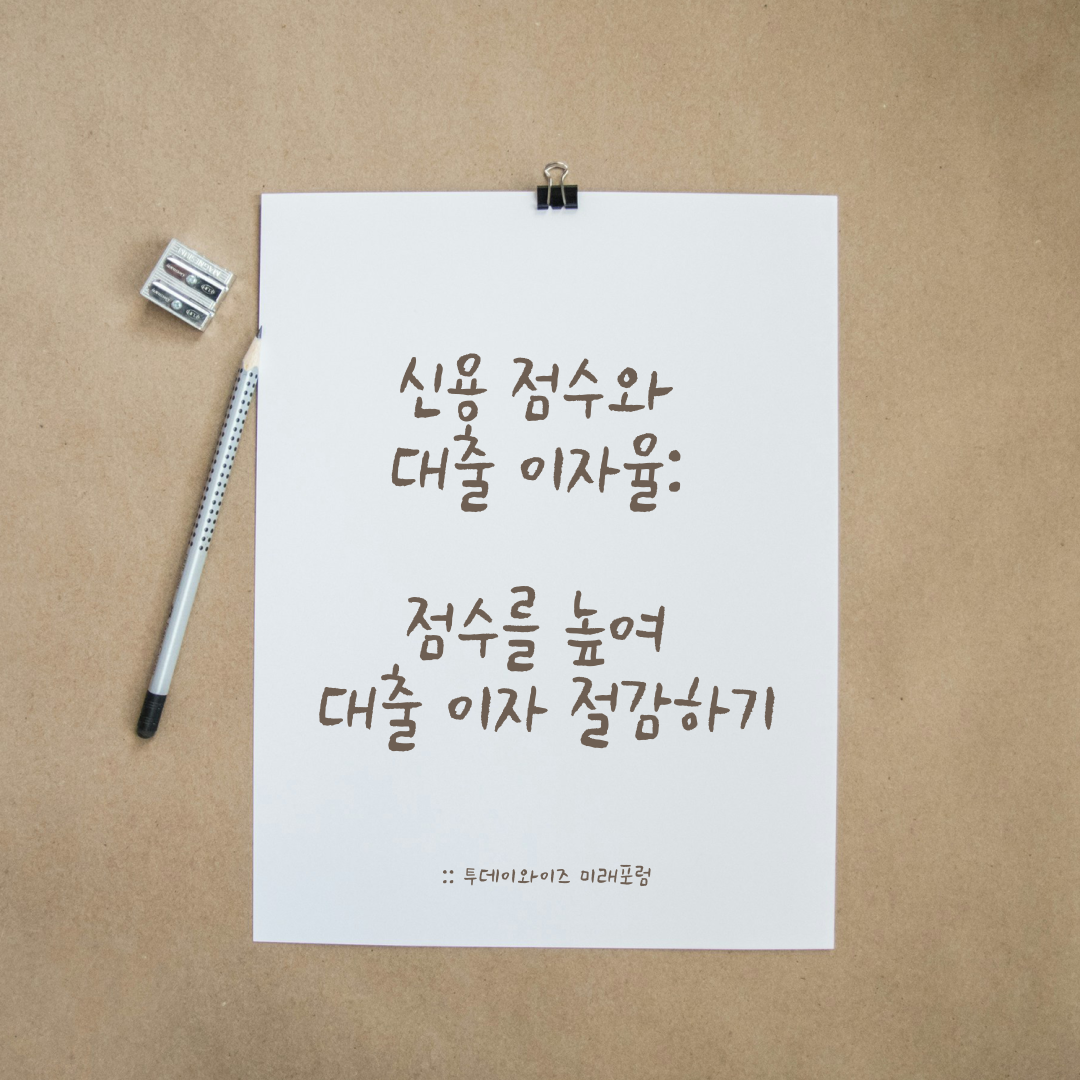 신용 점수와
대출 이자율:
점수를 높여
대출 이자 절감하기
:: 투데이와이즈 미래포럼